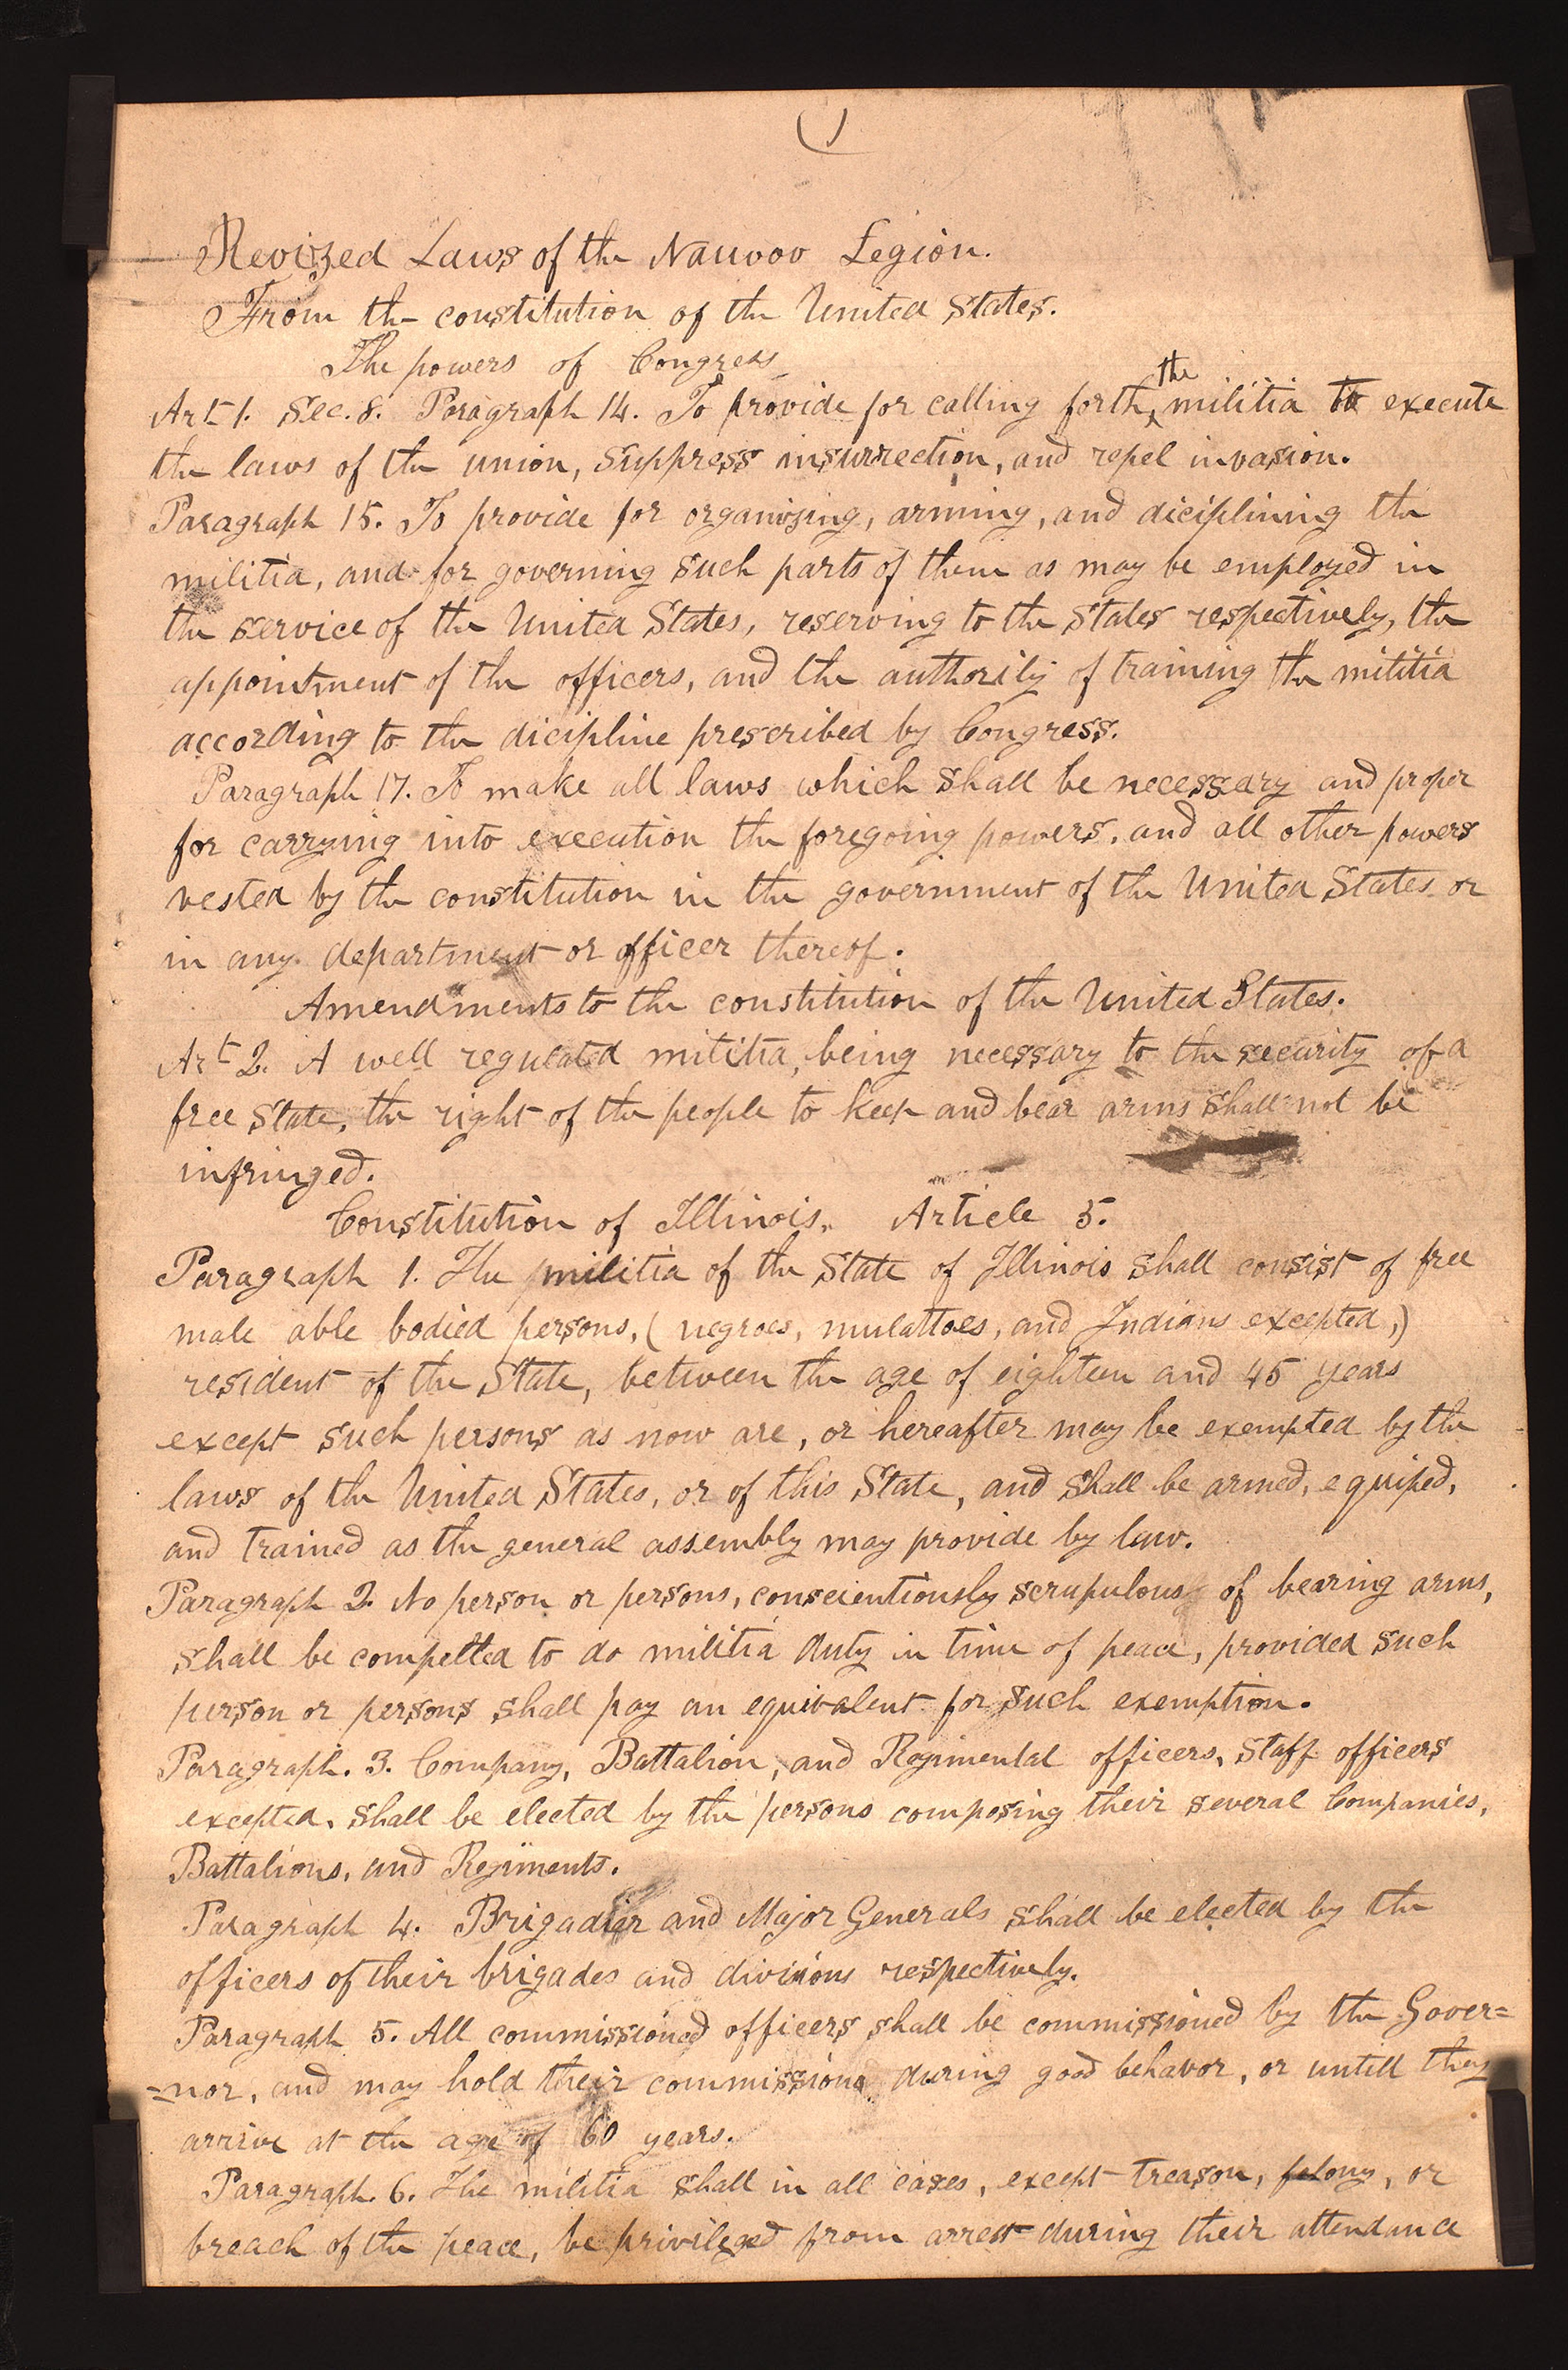 Revized Laws of the Nauvoo Legion.
From the constitution of the United States.
The powers of Congress
Art 1. Sec. 8. Paragraph 14. To provide for calling forth the militia to execute
the laws of the union, suppress insurrection, and repel invasion.
Paragraph 15. To provide for organizing, arming, and diciplining the
militia, and for governing such parts of them as may be employed in
the service of the United States, reserving to the States respectively, the
appointment of the officers, and the authority of training the militia
according to the dicipline prescribed by Congress.
Paragraph 17. To make all laws which shall be necessary and proper
for carrying into execution the foregoing powers, and all other powers
vested by the constitution in the government of the United States or
in any department or officer thereof.
Amendments to the constitution of the United States.
Art 2. A well regulated militia, being necessary to the security of a
free State, the right of the people to keep and bear arms shall not be
infringed.
Constitution of Illinois. Article 5.
Paragraph 1. The militia of the State of Illinois shall consist of free
male able bodied persons, (negroes, mulattoes, and Indians excepted,)
resident of the State, between the age of eighteen and 45 years
except such persons as now are, or hereafter may be exempted by the
laws of the United States, or of this State, and shall be armed, equiped,
and trained as the general assembly may provide by law.
Paragraph 2. No person or persons, conscientiously scrupulous of bearing arms,
shall be compelled to do militia duty in time of peace, provided such
person or persons shall pay an equivalent for such exemption.
Paragraph. 3. Company, Battalion, and Regimental officers, staff officers
excepted, shall be elected by the persons composing their several Companies,
Battalions, and Regiments.
Paragraph 4. Brigadier and Major Generals shall be elected by the
officers of their brigades and divisions respectively.
Paragraph 5. All commissioned officers shall be commissioned by the Gover=
=nor, and may hold their commissions during good behavor, or untill they
arrive at the age of 60 years.
Paragraph. 6. The militia shall in all cases, except treason, felony, or
breach of the peace, be privileged from arrest during their attendance